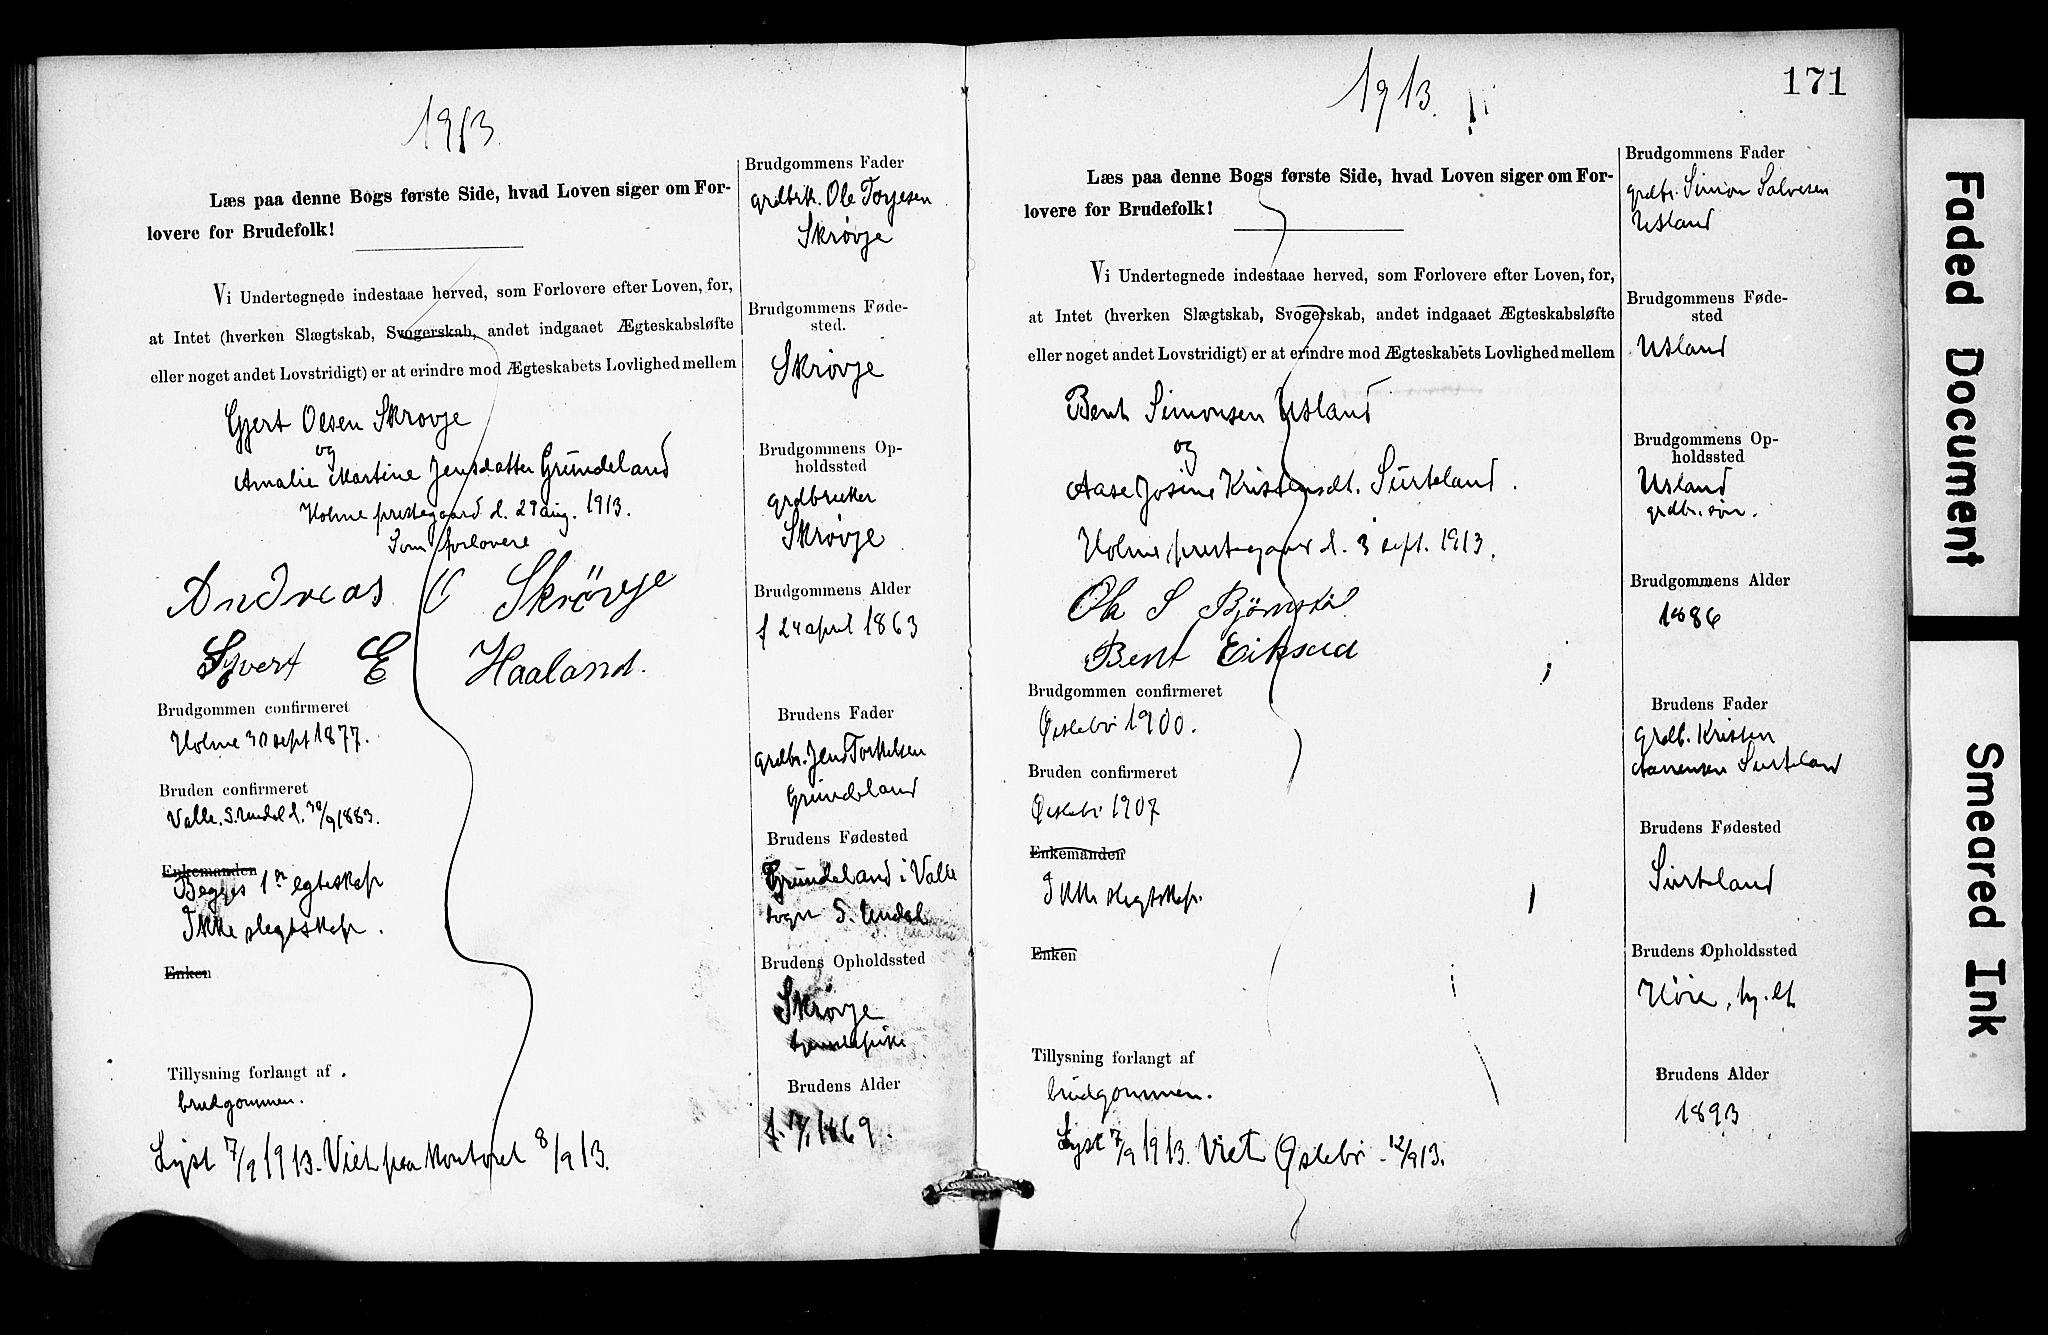 1913.
Læs paa denne Bogs første Side, hvad Loven siger om For-
lovere for Brudefolk!
Vi Undertegnede indestaae herved, som Forlovere efter Loven, for,
at Intet (hverken Slægtskab, Svogerskab, andet indgaaet Ægteskabsløfte
eller noget andet Lovstridigt) er at erindre mod Ægteskabets Lovlighed mellem
Gjert Olsen Skrøvje
og
Amalie Martine Jensdatter Grundeland
Holme prestegaard d. 29 aug. 1913.
Som forlovere
Andreas O Skrövje
Syvert E Haaland.
Brudgommen confirmeret
Holme 30 sept 1877.
Bruden confirmeret
Valle. S. Undal d. 30/9 1883.
Enkemanden
Begges 1ste egteskap
Ikke slegtskap.
Enken
Tillysning forlangt af
brudgommen.
Lyst 7/9 1913. Viet paa kontoret 8/9 13.
Brudgommens Fader
grdbrk. Ole Torjesen
Skrøvje
Brudgommens Føde-
sted.
Skrøvje
Brudgommens Op-
holdssted
grdbruker
Skrøvje
Brudgommens Alder
f 24 april 1863
Brudens Fader
grdbr. Jens Torkelsen
Grundeland
Brudens Fødested
Grundeland i Valle
sogn S. Undal
Brudens Opholdssted
Skrøvje
Brudens Alder
1913.
171
Læs paa denne Bogs første Side, hvad Loven siger om For-
lovere for Brudefolk!
Vi Undertegnede indestaae herved, som Forlovere efter Loven, for,
at Intet (hverken Slægtskab, Svogerskab, andet indgaaet Ægteskabsløfte
eller noget andet Lovstridigt) er at erindre mod Ægteskabets Lovlighed mellem
Bent Simonsen Usland
og
Aase Josine Kristensdt. Surteland.
Holme prestegaard d. 3 sept. 1913.
Ole S Björnstøl
Bent Eiksaa
Brudgommen confirmeret
Øislebø 1900.
Bruden confirmeret
Øislebø 1907
Enkemanden
Ikke slegtskap.
Enken
Tillysning forlangt af
brudgommen.
Lyst 7/9 1913. Viet Øslebø 12/9 13.
Brudgommens Fader
grdbr. Simon Salvesen
Usland
Brudgommens Føde-
sted
Usland
Brudgommens Op-
holdssted
Usland
grdbr. søn.
Brudgommens Alder
1886
Brudens Fader
grdb. Kristen
Aanensen Surteland
Brudens Fødested
Surteland
Brudens Opholdssted
Brudens Alder
1893
Faded Document
Smeared Ink